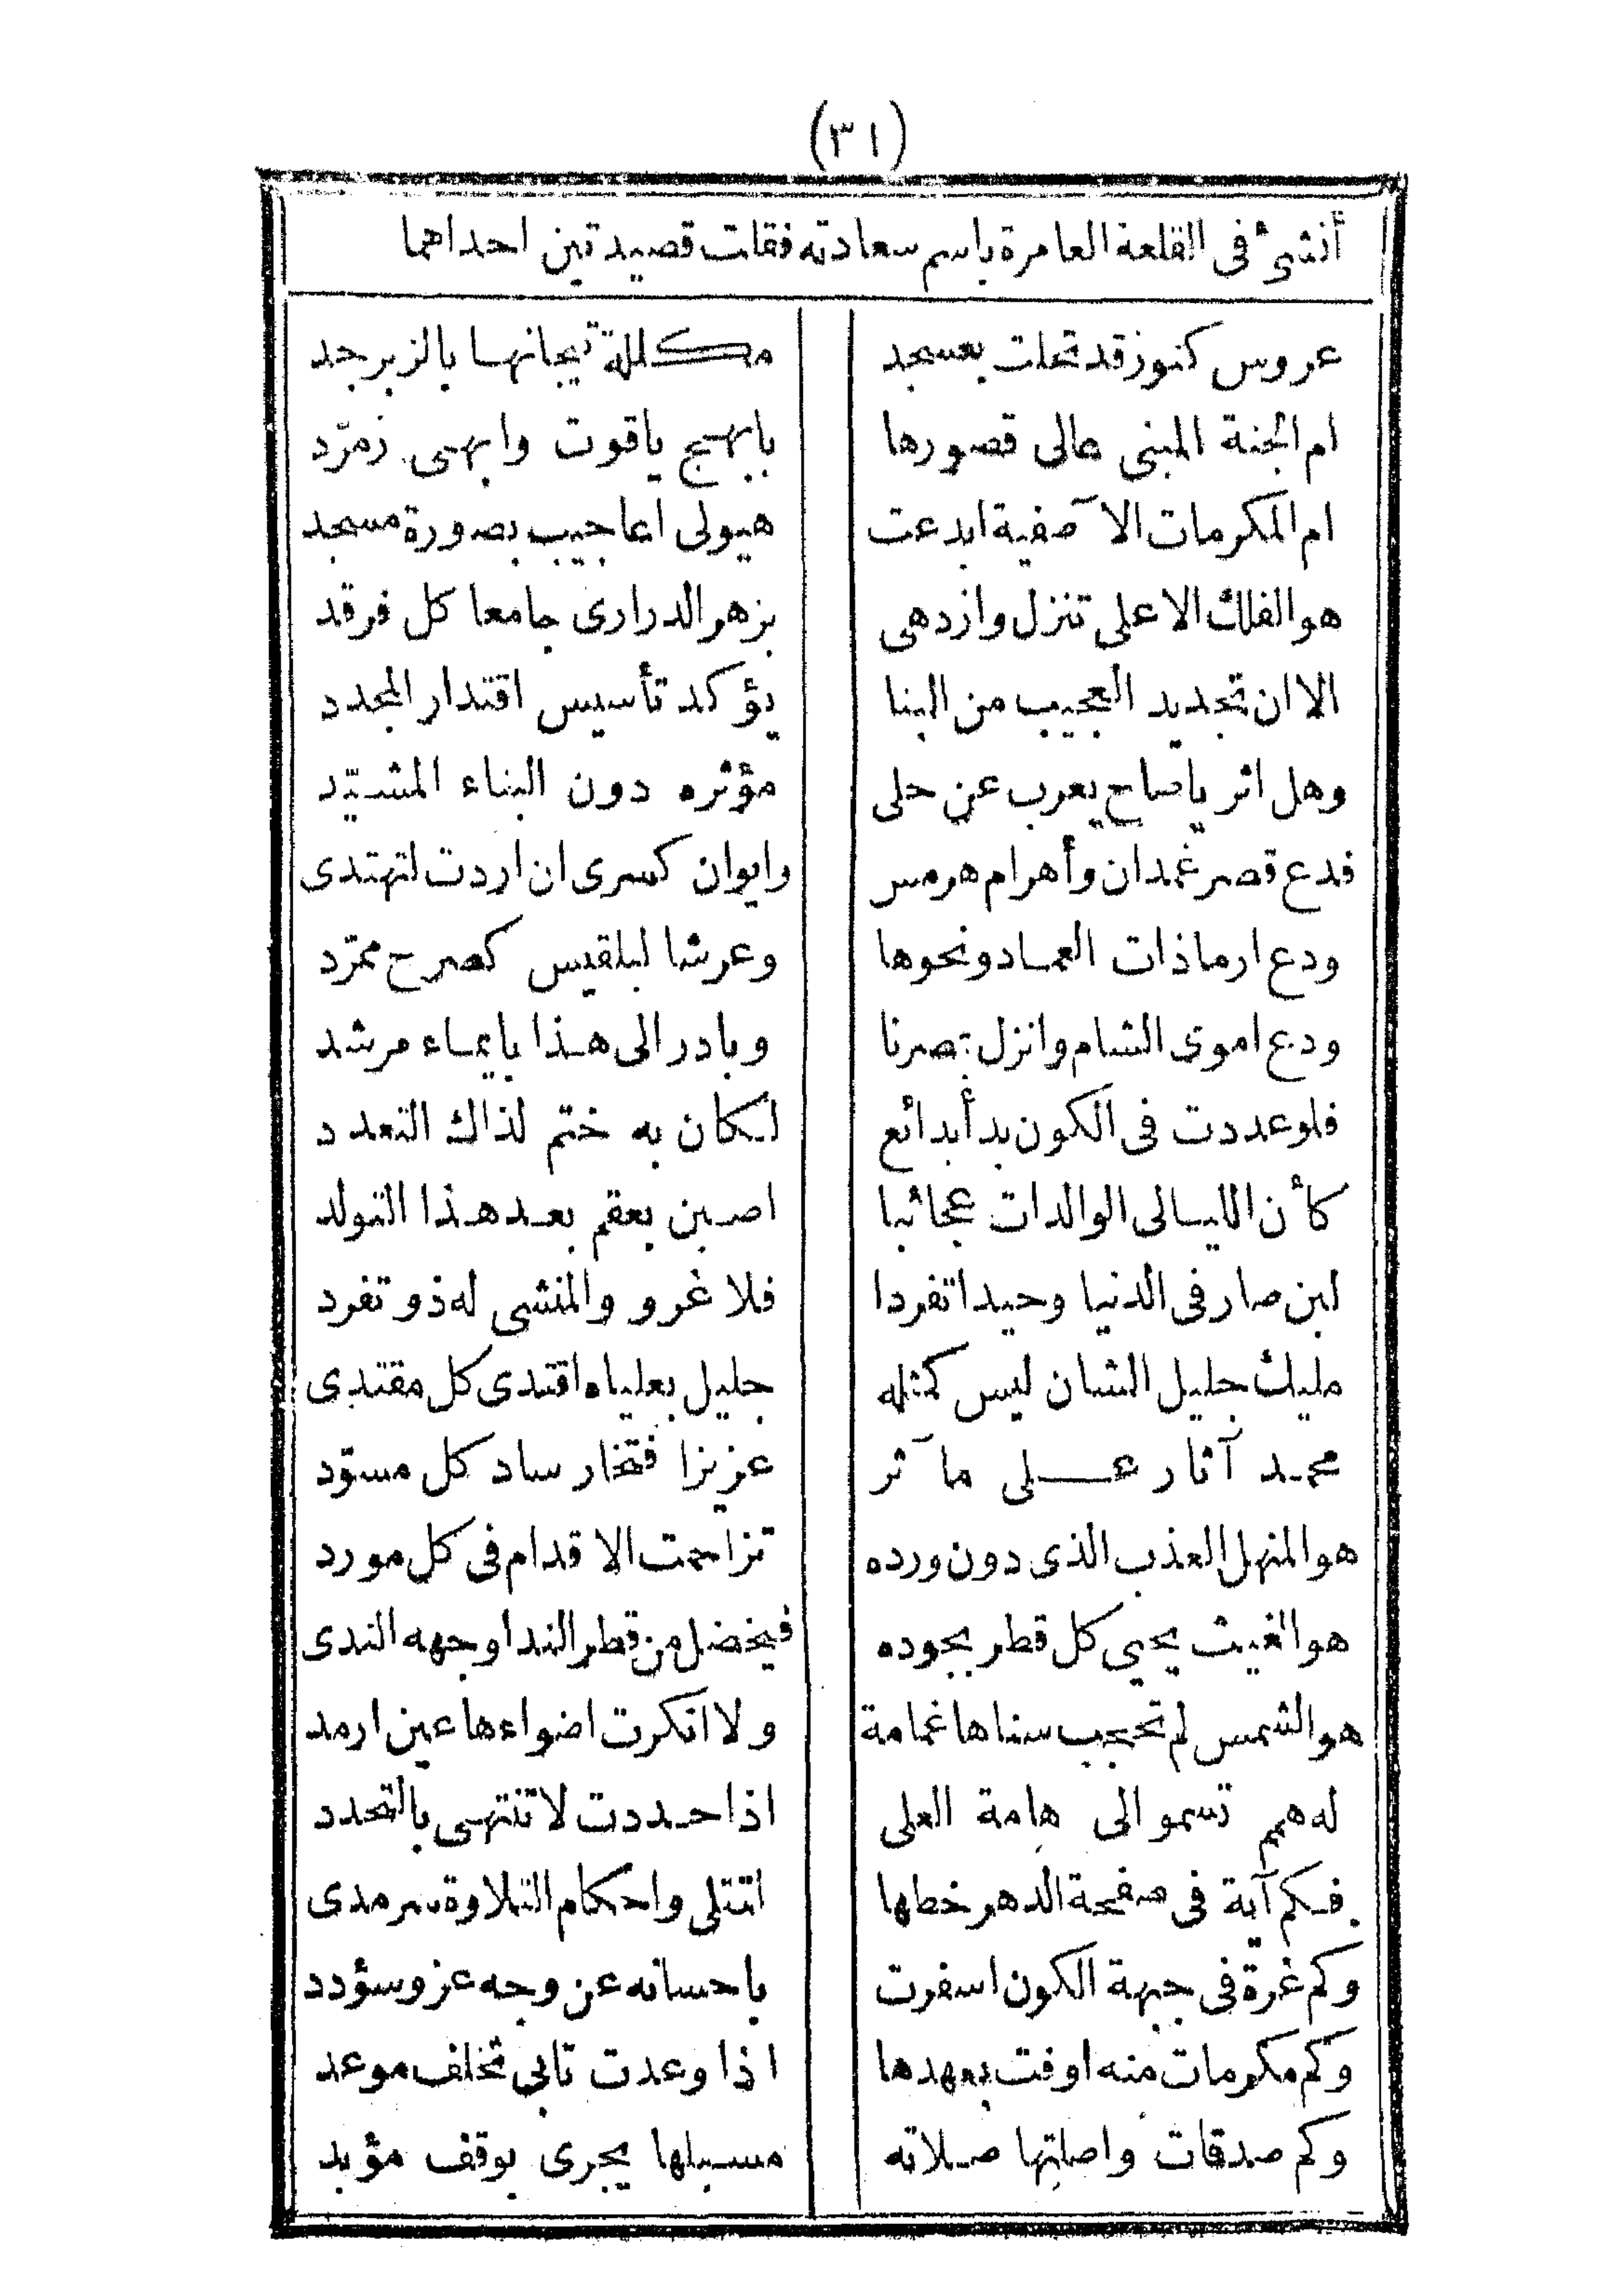 (٣١)
أنشئ فى القلعة العامرة باسم سعادته فقلت قصيدتين احداهما
عروس كنوز قد تحلت بعسجد مكللة تيجانها بالزبرجد
ام الجنة المبنى عالى قصورها بابهج ياقوت وابهى زمرّد
ام المكرمات الآصفية ابدعت هيولى اعاجيب بصورة مسجد
هو الفلك الاعلى تنزل وازدهى بزهر الدرارى جامعا كل فرقد
الا ان تجديد العجيب من البنا يؤكد تأسيس اقتدار المجدد
وهل اثر ياصاح يعرب عن حلى مؤثره دون البناء المشيّد
فدع قصر غمدان وأهرام هرمس وايوان كسرى ان اردت لتهتدى
ودع ارماذات العماد ونحوها وعرشا لبلقيس كصرح ممرّد
ودع اموى الشام وانزل بمصرنا وبادر الى هذا بايماء مرشد
فلوعددت فى الكون بدأ بدائع لكان به ختم لذاك التعدد
كأن الليالى الوالدات عجائبا اصبن بعقم بعد هذا التولد
لبن صار فى الدنيا وحيدا تفردا فلا غرو والمنشى له ذو تفرد
مليك جليل الشان ليس كمثله جليل بعلياه اقتدى كل مقتدى
محمد آثار على مآثر عزيزا فتخار ساد كل مسوّد
هو المنهل العذب الذى دون ورده تزاحمت الاقدام فى كل مورد
هو الغيث يحيى كل قطر بجوده فيخضل من قطر الندا وجهه الندى
هو الشمس لم تحجب سناها غمامة ولا انكرت اضواءها عين ارمد
له همم تسمو الى هامة العلى اذا حددت لا تنتهى بالتحدد
فكم آية فى صفحة الدهر خطها لتتلى واحكام التلاوة سرمدى
وكم غرة فى جبهة الكون اسفرت باحسانه عن وجه عز وسؤدد
وكم مكرمات منه اوفت بعهدها اذا وعدت تابى تخلف موعد
وكم صدقات واصلتها صلاته مسبلها يجرى بوقف مؤبد